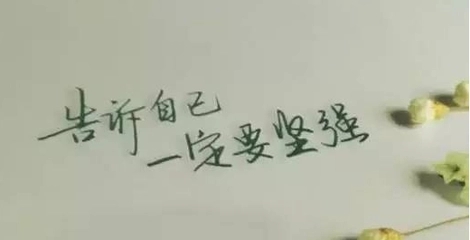 告诉自己
一定要坚强